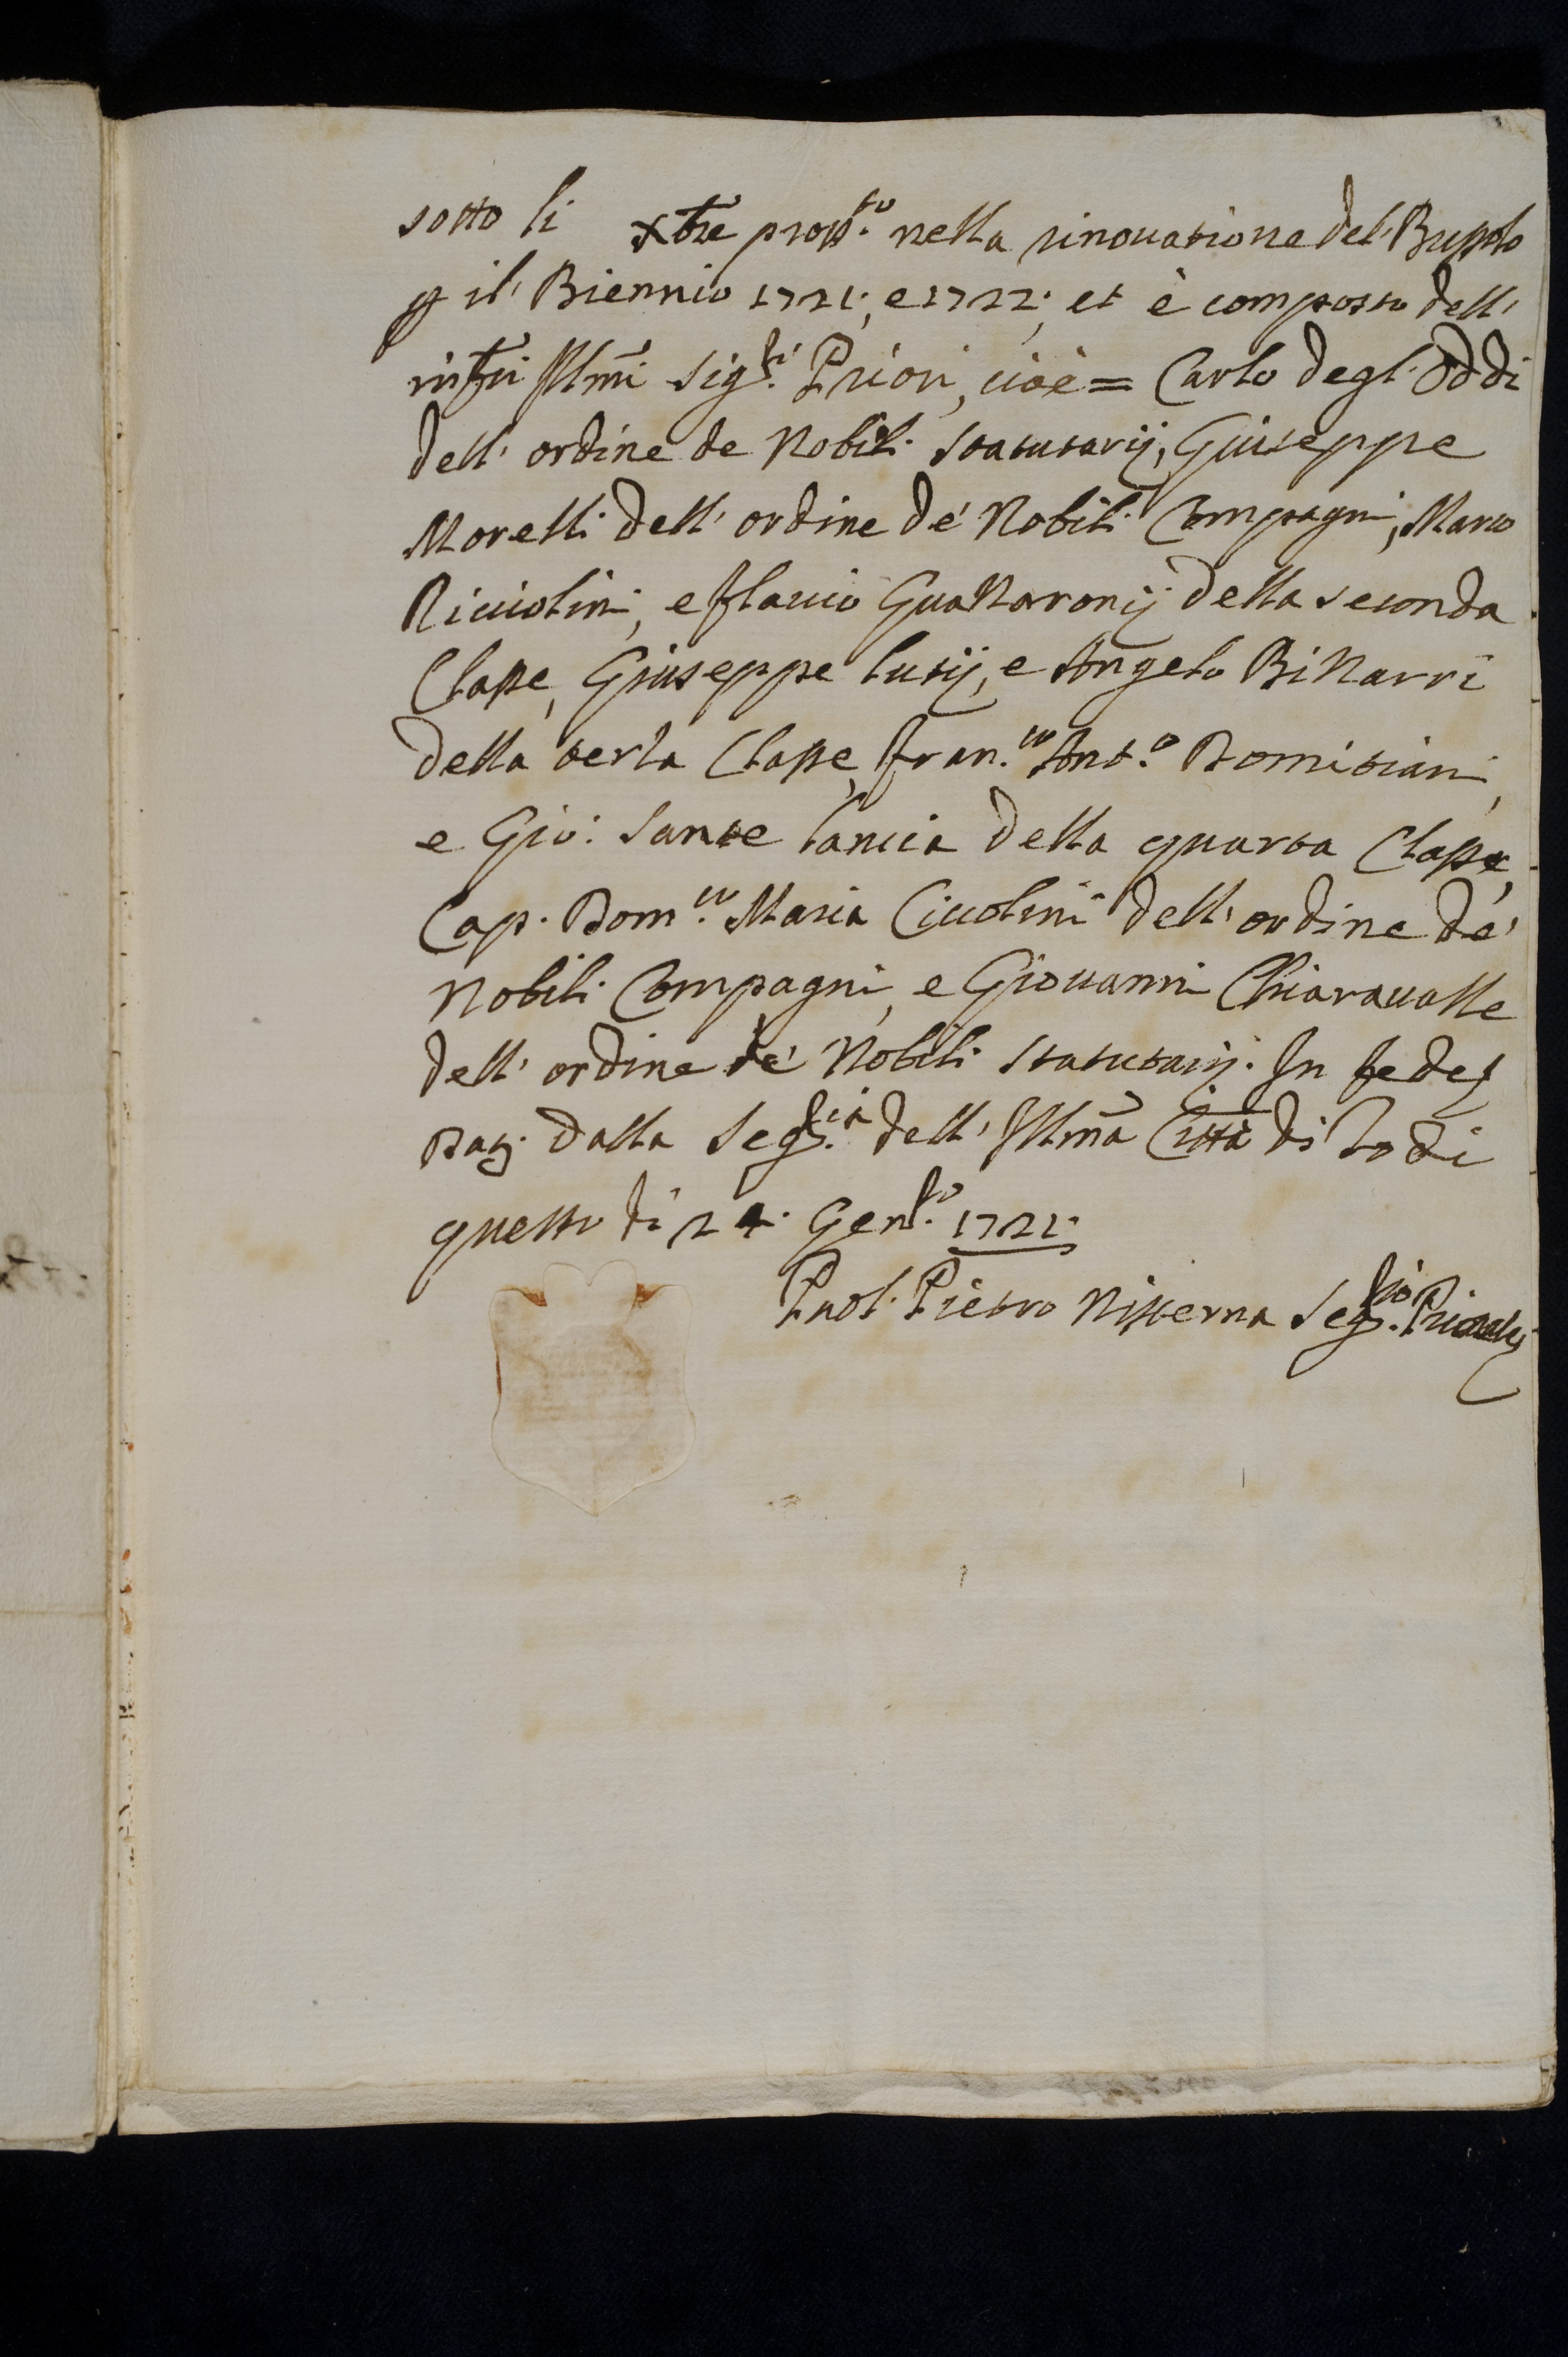 sotto li xbre pross.to nella rinouatione del Bussolo
p il Biennio 1721; e 1722; et è composto dell'
infri Illmi Sig.ri Priori, cioè = Carlo degl'Oddi
dell' ordine de Nobili Statutarij, Giuseppe
Morelli dell' ordine de' Nobili Compagni, Marco
Ricciolini, e Flauio Gualtaronij della seconda
Classe, Giuseppe Lutij, e Angelo Biltarri
della terza Classe, Fran.co Ant.o Domitiani,
e Gio: Sante Lancia della quarta Classe,
Cap. Dom.co Maria Ciccolini dell' ordine de'
Nobili Compagni, e Giouanni Chiaraualle
dell' ordine de' Nobili Statutarij. In fede
Dalla Seg.ria dell' Illma Città di Todi
questo dì 24. Gen.ro 1721.
Pietro Seg.rio